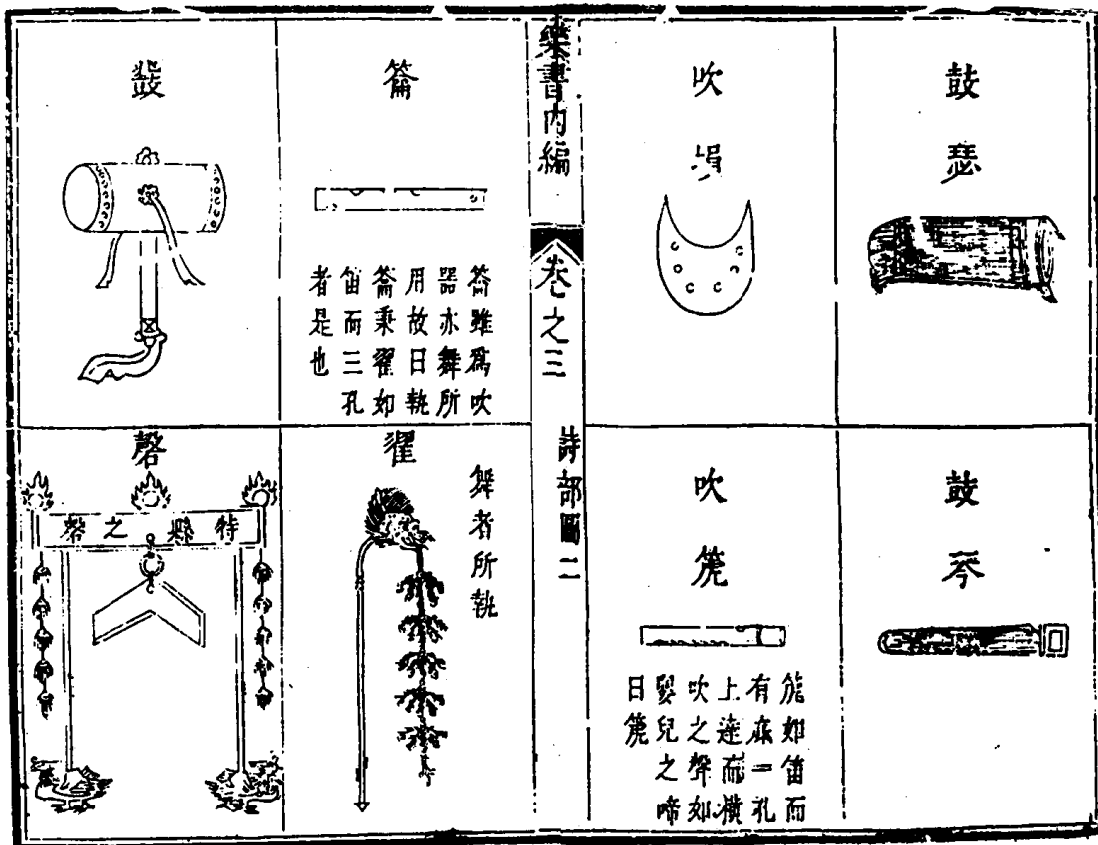 鼓瑟
吹塤
鼓琴
吹箎
箎如笛而
有底一孔
上達而橫
吹之聲如
嬰兒之啼
曰箎
樂書內編
卷之三
詩部圖二
籥
籥雖爲吹
器亦舞所
用故曰執
籥秉翟如
笛而三孔
者是也
鼗
翟
舞者所執
磬
特縣之磬